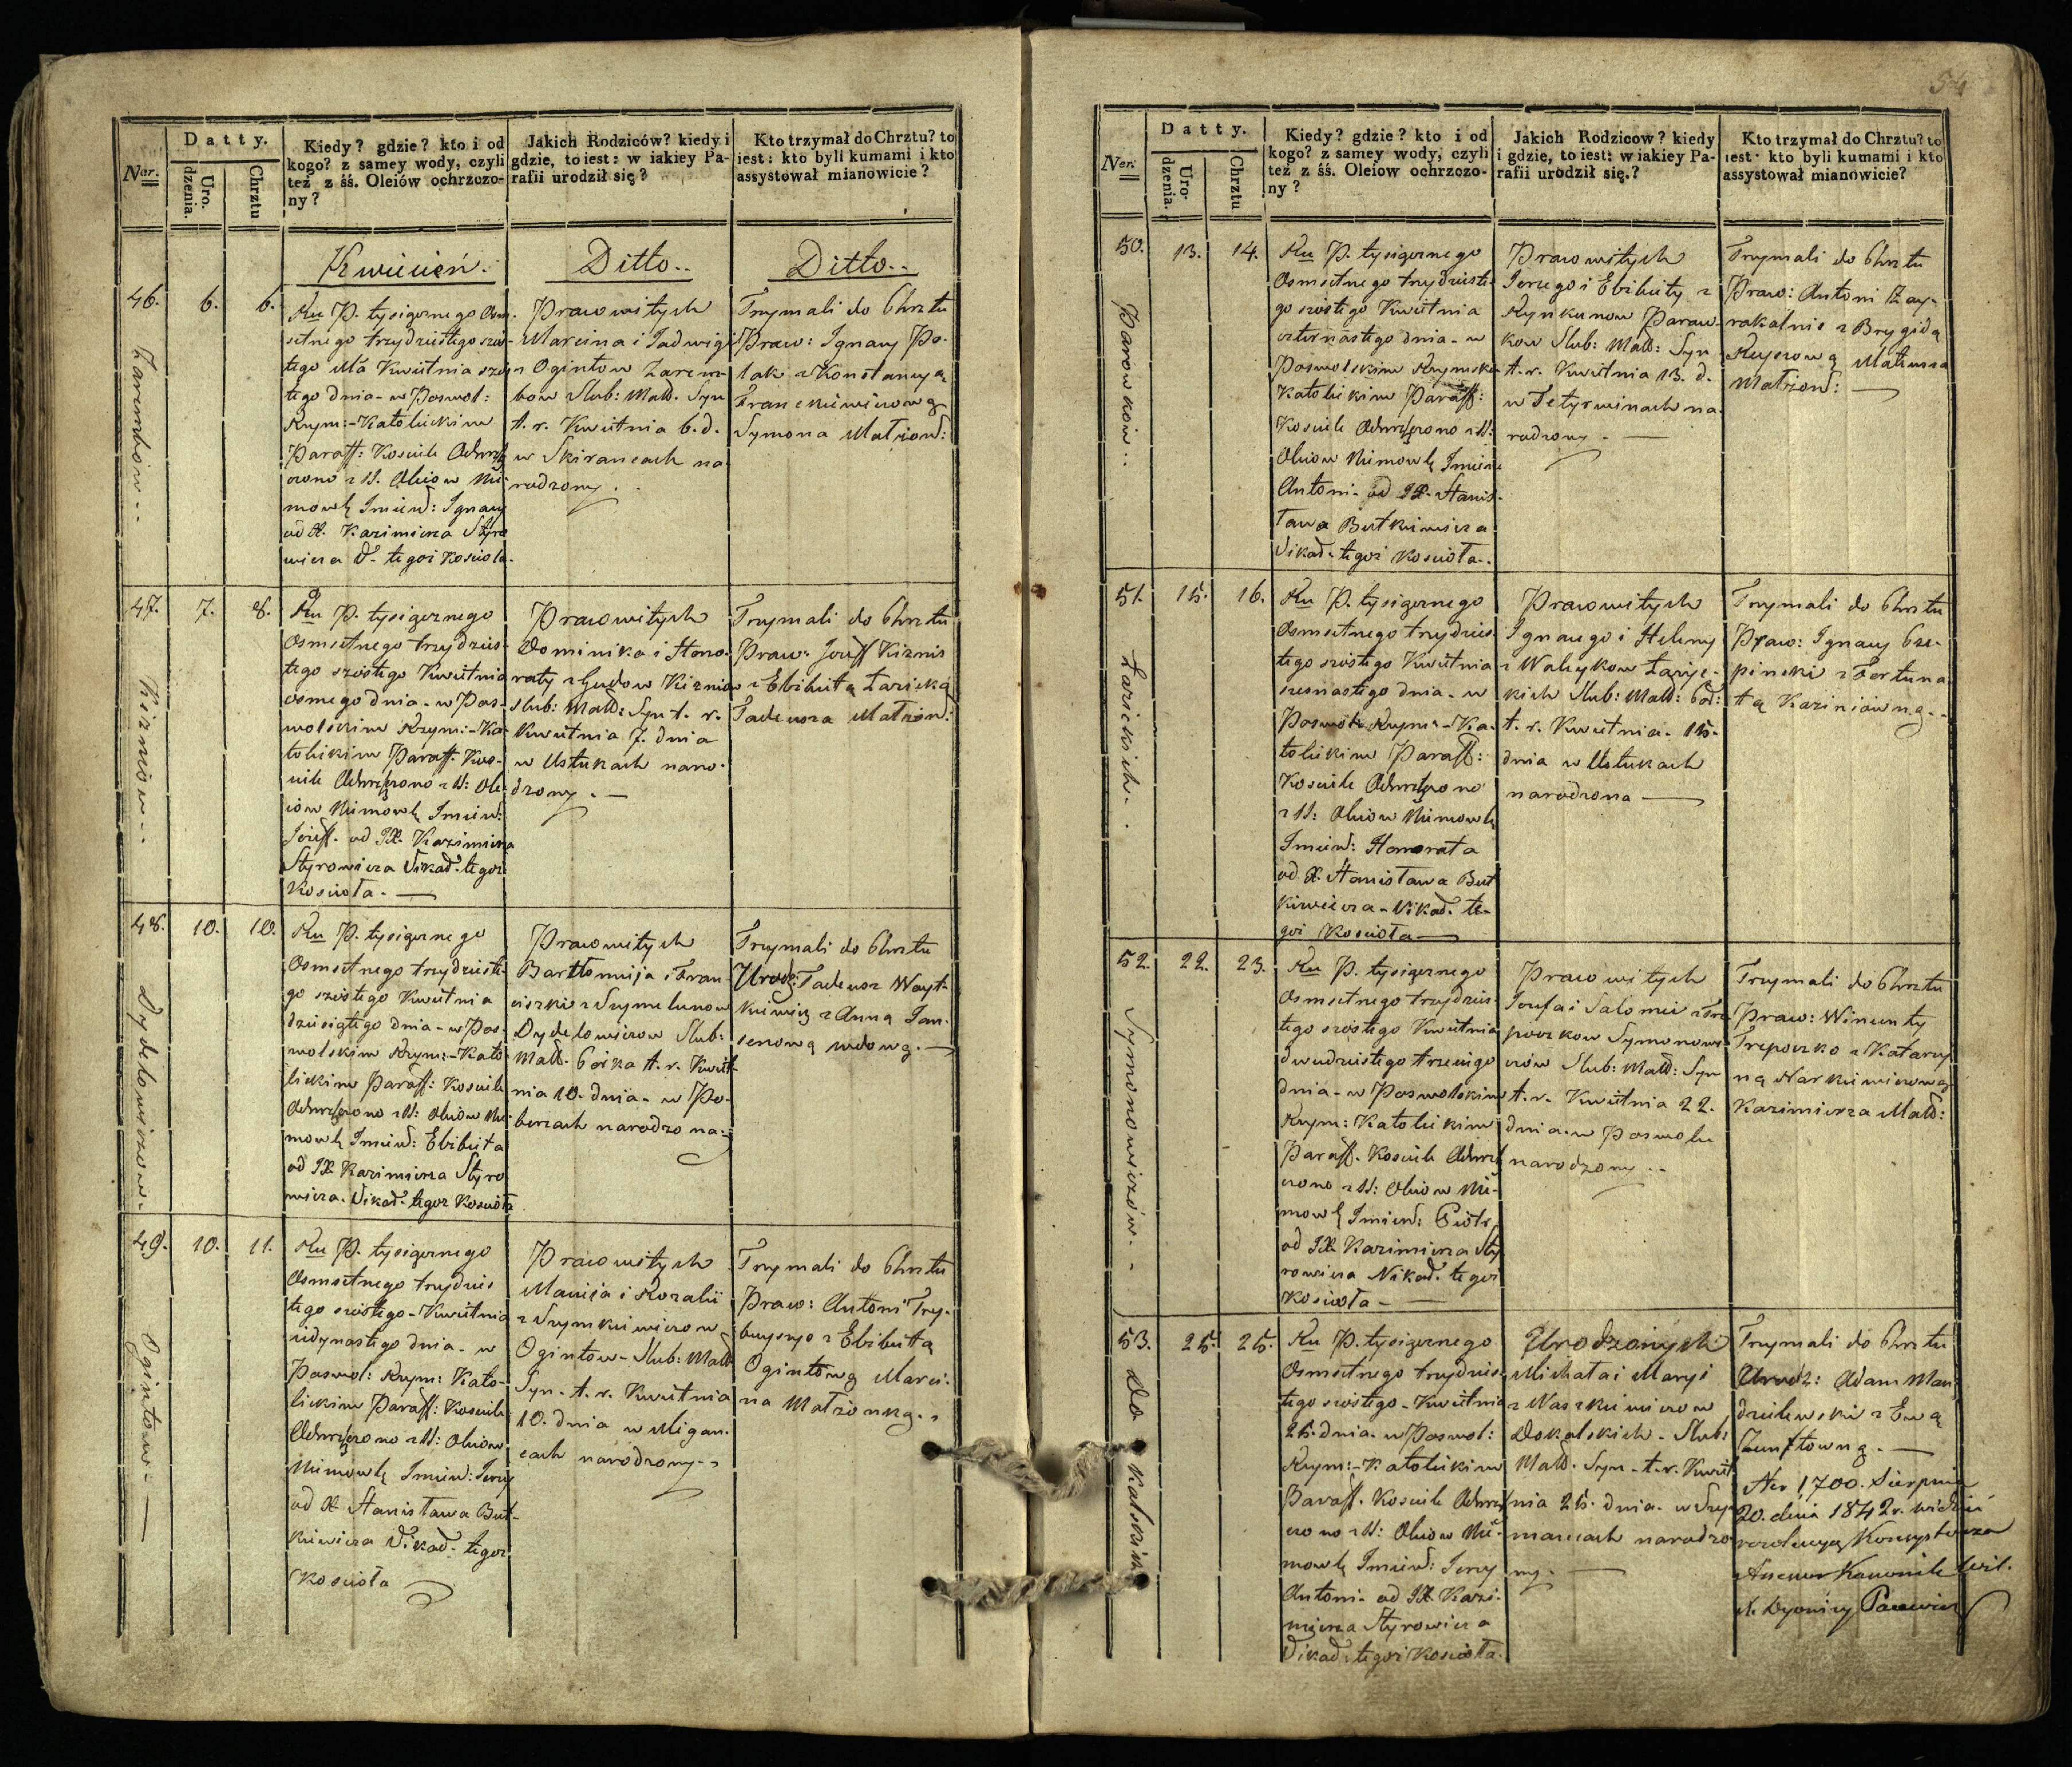 Ner.
Datty.
Uro-
dzenia.
Chrztu
Kiedy? gdzie? kto i od
kogo? z samey wody, czyli
też z śś. Oleiów ochrzczo-
ny?
Jakich Rodziców? kiedy i
gdzie, to iest: w iakiey Pa-
rafii urodził się?
Kto trzymał do Chrztu? to
iest: kto byli kumami i kto
assystował mianowicie?
Kwiecień.
Ditto..
Ditto..
46. 6. 6.
Zarembow..
Ru P. tysiącznego Osm-
setnego trzydziestego szós-
tego Ma Kwietnia szós-
tego dnia - w Poswol:
Rzym:-Katolickim
Paraff: Kosciele Ochrzsz
czono z SS. Oleiow Nie-
mowlę Imien: Ignacy
od X. Kazimierza Styro
wicza W. tegoż Kościoła.
Prawowitych
Marcina i Jadwigi
z Ogintow Zarem-
bow Slub: Małż. Syn
t. r. Kwietnia 6. d.
w Skirancach na
rodzony.
Trzymali do Chrztu
Praw: Ignacy Po-
lak z Konstancyą
Franckiewiczową
Symona Małżon:
47. 7. 8.
Kiznisow..
Ru P. tysiącznego
Osmsetnego trzydzies-
tego szóstego Kwietnia
osmego dnia - w Pos-
wolskim Rzym:-Ka-
tolickim Paraff: Kos-
ciele Ochrzszczono z SS: Ole-
iów Niemowlę Imien:
Józeff. od JX. Kazimierza
Styrowicza Wikar. tegoż
Kościoła. —
Prawowitych
Dominika i Hono-
raty z Gudow Kiznisow
Slub: Małż: Syn t. r.
Kwietnia 7. dnia
w Ustukach naro-
dzony. —
Trzymali do Chrztu
Praw: Józeff Kiznis
z Elżbietą Łasicką
Tadeusza Małżon:
48. 10. 10.
Dydelowiczow..
Ru P. tysiącznego
Osmsetnego trzydzieste-
go szóstego Kwietnia
dziesiątego dnia - w Pos-
wolskim Rzym:-Kato
lickim Paraff: Kosciele
Ochrzszczono z SS: Oleiów Nie-
mowlę Imien: Elżbieta
od JX. Kazimierza Styro
wicza. Wikar. tegoz Kościoła
Prawowitych
Bartłomieja i Fran
ciszki z Szymelunow
Dydelowiczow Slub:
Małż. Córka t. r. Kwiet-
nia 10. dnia - w Po-
berzach narodzona.
Trzymali do Chrztu
Urodz: Tadeusz Woyt-
kiewicz z Anną Jan-
senową wdową. —
49. 10. 11.
Ogintow. —
Ru P. tysiącznego
Osmsetnego trzydzies
tego szóstego - Kwietnia
iedynastego dnia - w
Poswol: Rzym: Kato-
lickim Paraff: Kosciele
Ochrzszczono z SS: Oleiow
Niemowlę Imien: Jerzy
od X. Stanisława But-
kiewicza Wikar. tegoz
Kościoła
Prawowitych
Macieja i Rozalii
z Szymkiewiczow
Ogintow - Slub: Małż
Syn - t. r. Kwietnia
10. dnia w Migan-
cach narodzony.
Trzymali do Chrztu
Praw: Antoni Try-
buszys z Elżbietą
Ogintową Marci-
na Małżonką.
54
Ner.
Datty.
Uro-
dzenia.
Chrztu
Kiedy? gdzie? kto i od
kogo? z samey wody, czyli
też z śś. Oleiow ochrzczo-
ny?
Jakich Rodzicow? kiedy
i gdzie, to iest: w iakiey Pa-
rafii urodził się.?
Kto trzymał do Chrztu? to
iest: kto byli kumami i kto
assystował mianowicie?
50. 13. 14.
Parowkow..
Ru P. tysiącznego
Osmsetnego trzydzieste-
go szóstego Kwietnia
czternastego dnia - w
Poswolskim Rzymsko
Katolickim Paraff:
Kosciele Ochrzszczono z SS:
Oleiow Niemowlę Imien
Antoni - od JX. Stanis-
ława Butkiewicza
Wikar. tegoż Kościoła.
Prawowitych
Jerzego i Elżbiety z
Rynkunow Parow-
kow Slub: Małż: Syn
t. r. Kwietnia 13. d.
w Tetyrwinach na-
rodzony. —
Trzymali do Chrztu
Praw: Antoni Zay-
rakalnis z Brygidą
Mateusza
Małżon: —
51. 15. 16.
Łasickich.
Ru P. tysiącznego
Osmsetnego trzydzies
tego szóstego Kwietnia
szesnastego dnia - w
Poswols: Rzym:-Ka-
tolickim Paraff:
Kosciele Ochrzszczono
z SS: Oleiow Niemowlę
Imien: Honorata
od X. Stanisława But
kiewicza - Wikar. te-
goż Kościoła —
Prawowitych
Ignacego i Heleny
z Walcykow Łasic-
kich Slub: Małż: Cór:
t. r. Kwietnia - 15.
dnia w Ustukach
narodzona —
Trzymali do Chrztu
Praw: Ignacy Cze-
pinski z Fortuna
tą Kaziniówną..
52. 22. 23.
Symonowiczów.
Ru P. tysiącznego
Osmsetnego trzydzies
tego szóstego Kwietnia
dwudziestego trzeciego
dnia - w Poswolskim
Rzym: Katolickim
Paraff. Kosciele Ochrzsz
czono z SS: Oleiow Nie-
mowlę Imien: Piotr
od JX Kazimierza Sty
rowicza Wikar. tegoż
Kościoła —
Prawowitych
Józefa i Salomei z Tre
poczkow Symonowi-
czów Slub: Małż: Syn
t. r. Kwietnia 22.
dnia - w Poswolu
narodzony..
Trzymali do Chrztu
Praw: Wincenty
Trepoczko z Katarzy
ną Narkiewiczową
Kazimierza Małż:
53. 25. 25.
Dokalskich
Ru P. tysiącznego
Osmsetnego trzydzies-
tego szóstego - Kwietnia
25. dnia - w Poswol:
Rzym:-Katolickim
Paraff. Kosciele Ochrzsz
czono z SS: Oleiow Nie-
mowlę Imien: Jerzy
Antoni - od JX. Kazi-
mierza Styrowicza
Wikar. tegoż Kościoła.
Urodzonych
Michała i Maryi
z Waszkiewiczow
Dokalskich - Slub:
Małż. Syn - t. r. Kwiet
nia 25. dnia - w Szy-
mancach narodzo
ny. —
Trzymali do Chrztu
Urodz: Adam Man-
dzilewski z Ewą
Zunftowną. —
Nr 1,700. Sierpnia
20. dnia 1842 r.
Konsystorza
Kanonik Wil.
X. Dyonizy